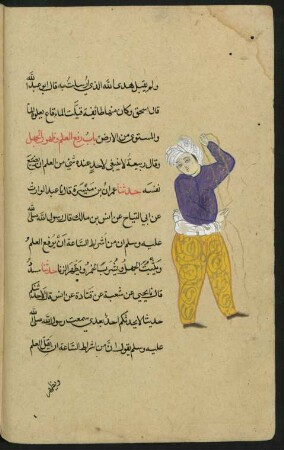 ولم يقبل هدى الله الذي ارسلت به قال ابو عبد الله
قال اسحق وكان منها طائفة قيلت الماء قاع يعلوه الماء
والمستوي من الارض باب رفع العلم وظهور الجهل
وقال ربيعة لا ينبغي لاحد عنده شي من العلم ان يضيع
نفسه حدثنا عمران بن ميسرة قال نا عبد الوارث
عن ابي التياح عن انس بن مالك قال رسول الله صلى الله
عليه وسلم ان من اشراط الساعة ان يرفع العلم
ويثبت الجهل ويشرب الخمر ويظهر الزنا حدثنا مسدد
قال نا يحيى عن شعبة عن قتادة عن انس قال لاحدثنكم
حديثا لا يحدثكم احد بعدي سمعت رسول الله صلى الله
عليه وسلم يقول ان من اشراط الساعة ان يقل العلم
ويظهر